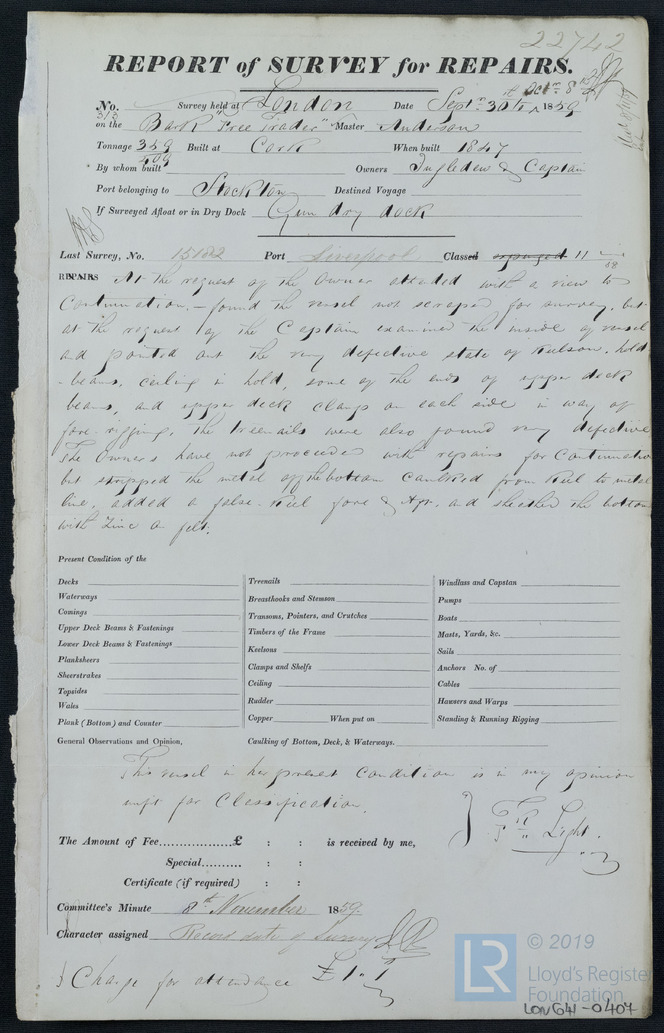 22742
REPORT of SURVEY for REPAIRS.
No. 313 Survey held at London Date Sept. 30th Octr 8th 1859
on the Bark "Free Trader" Master Anderson
Tonnage 359 409 Built at Cork When built 1847
By whom built Owners Ingledew & Captain
Port belonging to Stockton Destined Voyage
If Surveyed Afloat or in Dry Dock Gun dry dock
Last Survey, No. 15182 Port Liverpool Classed expunged 11 58
REPAIRS At the request of the Owner attended with a view to
Continuation, - found the vessel not scraped for survey, but
at the request of the Captain examined the inside of vessel
and pointed out the very defective state of Keelson, hold
-beams, ceiling in hold, some of the ends of upper deck
beams, and upper deck clamp on each side in way of
fore rigging. The treenails were also found very defective
The Owners have not proceeded with repairs for Continuation
but stripped the metal off the bottom caulked from Keel to metal
line, added a false Keel fore & Aft, and sheathed the bottom
with Zinc on felt.
Present Condition of the
Decks
Waterways
Comings
Upper Deck Beams & Fastenings
Lower Deck Beams & Fastenings
Planksheers
Sheerstrakes
Topsides
Wales
Plank (Bottom) and Counter
Treenails
Breasthooks and Stemson
Transoms, Pointers, and Crutches
Timbers of the Frame
Keelsons
Clamps and Shelfs
Ceiling
Rudder
Copper When put on
Windlass and Capstan
Pumps
Boats
Masts, Yards, &c.
Sails
Anchors No. of
Cables
Hawsers and Warps
Standing & Running Rigging
General Observations and Opinion, Caulking of Bottom, Deck, & Waterways.
This vessel in her present condition is in my opinion
unfit for Classification.
Light.
The Amount of Fee..................£ : : is received by me,
Special.......... : :
Certificate (if required) : :
Committee's Minute 8th November 1859.
Character assigned Record date of Survey
Charge for attendance £1. "
LR © 2019
Lloyd's Register
Foundation
LON641-0407